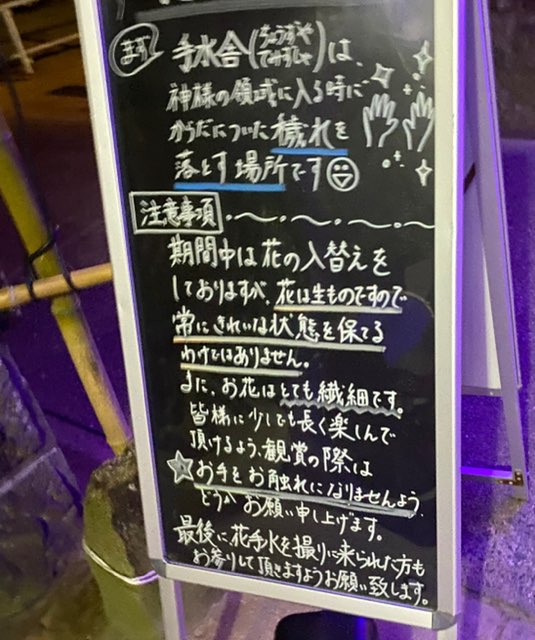 まず 手水舎(ちょうずや てみずしゃ)は、
神様の領域に入る時に
からだについた穢れを
落とす場所です
注意事項
期間中は花の入替えを
しておりますが、花は生ものですので
常にきれいな状態を保てる
わけではありません。
また、お花はとても繊細です。
皆様に少しでも長く楽しんで
頂けるよう、観賞の際は
☆お手をお触れになりませんよう、
どうか お願い申し上げます。
最後に花手水を撮りに来られた方も
お参りして頂きますようお願い致します。